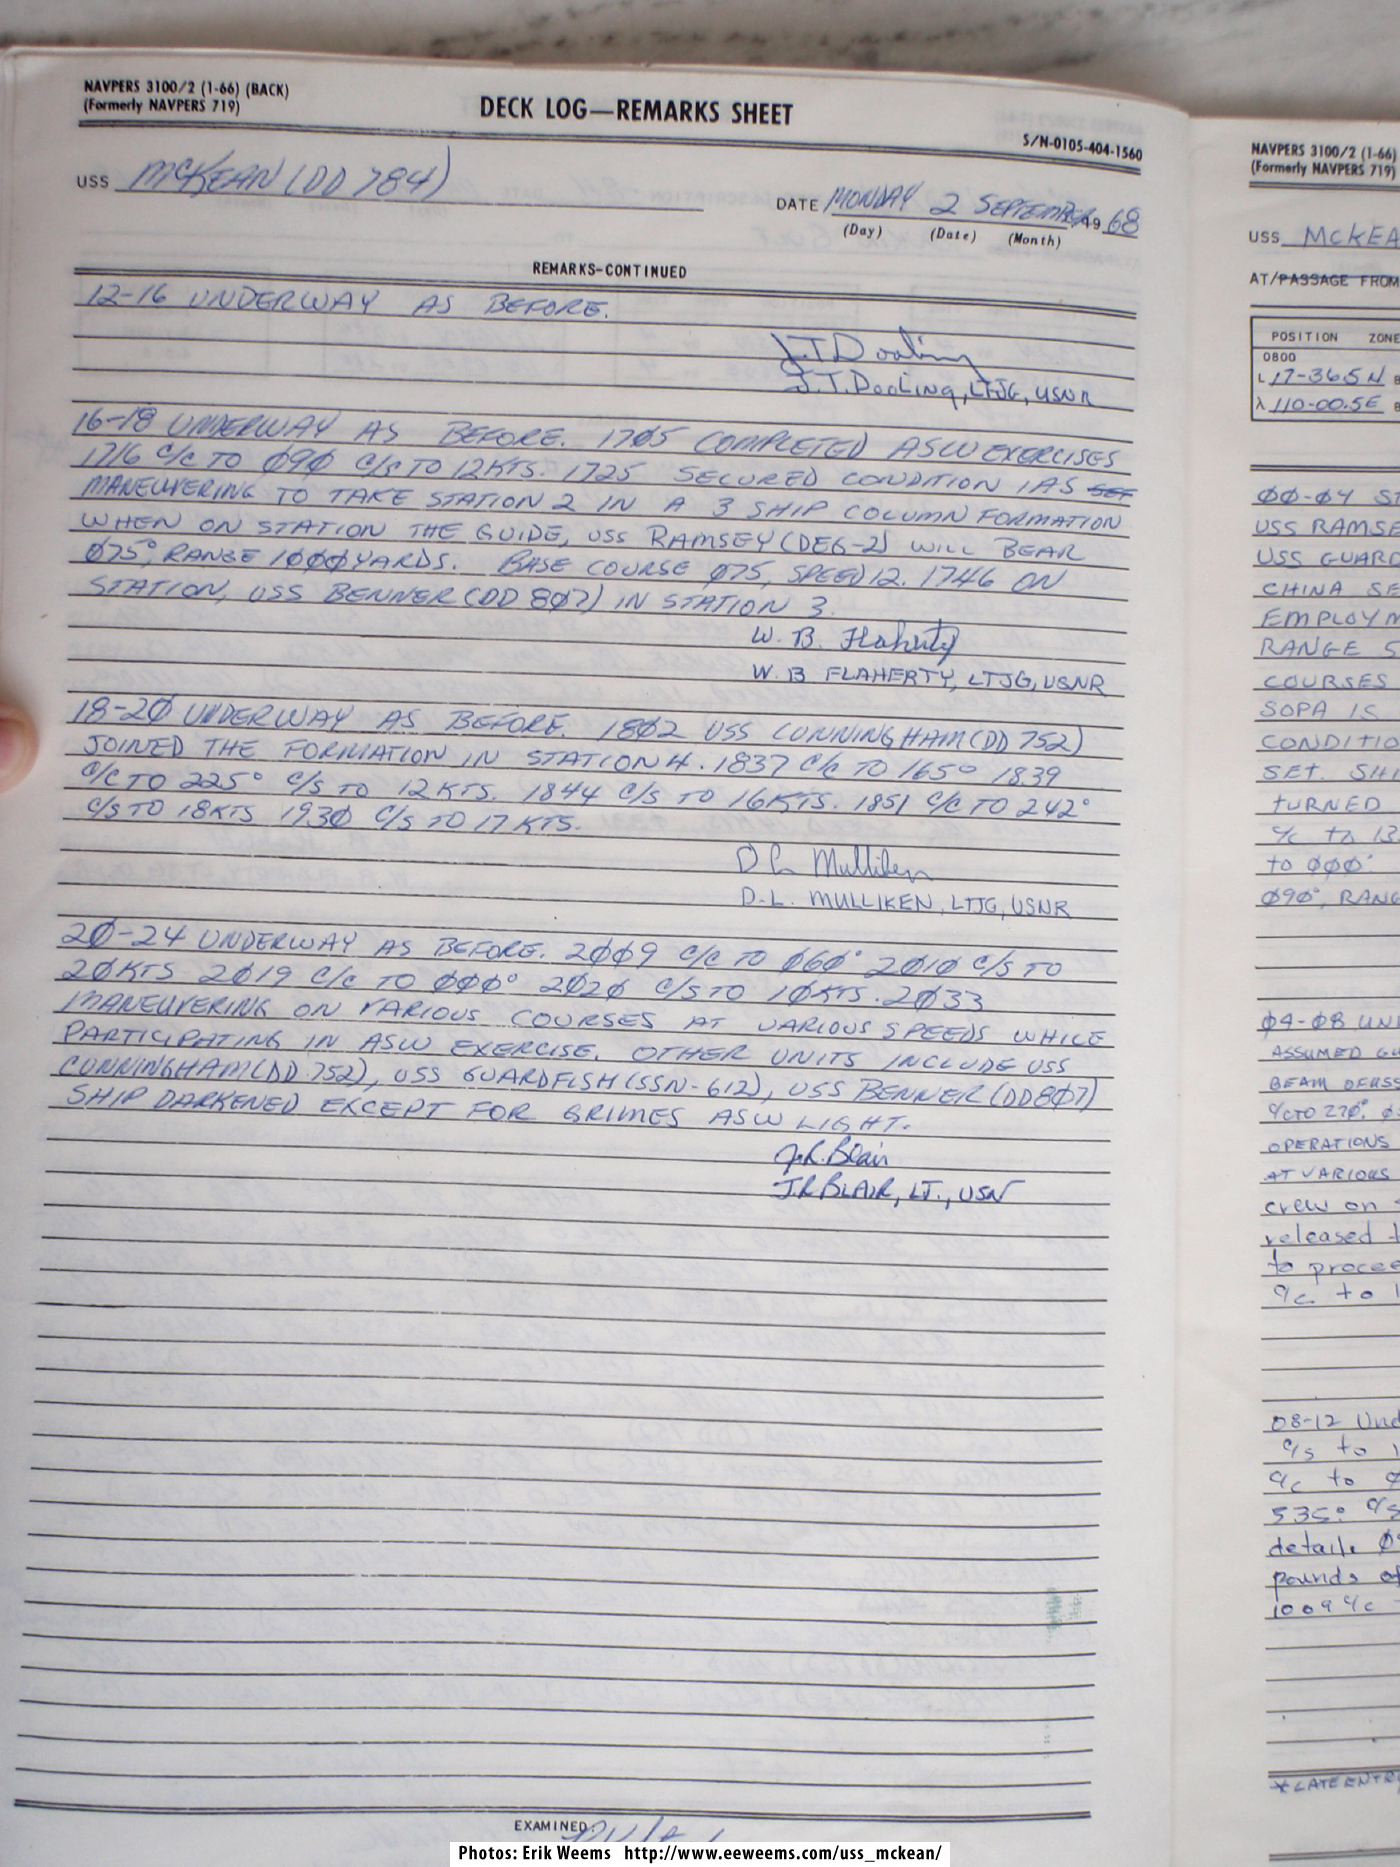 NAVPERS 3100/2 (1-66) (BACK)
(Formerly NAVPERS 719)
DECK LOG—REMARKS SHEET
S/N-0105-404-1560
USS McKEAN (DD 784)
DATE MONDAY 2 SEPTEMBER 1968
(Day) (Date) (Month)
REMARKS-CONTINUED
12-16 UNDERWAY AS BEFORE.
J.T Dooling
J.T. Dooling, LTJG, USNR
16-18 UNDERWAY AS BEFORE. 17Ø5 COMPLETED ASW EXERCISES
1716 C/C TO Ø9Ø C/S TO 12KTS. 1725 SECURED CONDITION 1AS
MANEUVERING TO TAKE STATION 2 IN A 3 SHIP COLUMN FORMATION
WHEN ON STATION THE GUIDE, USS RAMSEY (DEG-2) WILL BEAR
Ø75°, RANGE 1ØØØ YARDS. BASE COURSE Ø75, SPEED 12. 1746 ON
STATION, USS BENNER (DD 8Ø7) IN STATION 3.
W. B. Flaherty
W. B FLAHERTY, LTJG, USNR
18-2Ø UNDERWAY AS BEFORE. 18Ø2 USS CUNNINGHAM (DD 752)
JOINED THE FORMATION IN STATION 4. 1837 C/C TO 165° 1839
C/C TO 225° C/S TO 12 KTS. 1844 C/S TO 16KTS. 1851 C/C TO 242°
C/S TO 18KTS 193Ø C/S TO 17 KTS.
D L Mulliken
D.L. MULLIKEN, LTJG, USNR
2Ø-24 UNDERWAY AS BEFORE. 2ØØ9 C/C TO Ø6Ø° 2Ø1Ø C/S TO
2ØKTS 2Ø19 C/C TO ØØØ° 2Ø2Ø C/S TO 1ØKTS. 2Ø33
MANEUVERING ON VARIOUS COURSES AT VARIOUS SPEEDS WHILE
PARTICIPATING IN ASW EXERCISE. OTHER UNITS INCLUDE USS
CUNNINGHAM (DD 752), USS GUARDFISH (SSN-612), USS BENNER (DD8Ø7)
SHIP DARKENED EXCEPT FOR GRIMES ASW LIGHT.
J.R. Blair
J.R BLAIR, LT., USN
EXAMINED:
NAVPERS 3100/2 (1-66)
(Formerly NAVPERS 719)
USS McKEA
AT/PASSAGE FROM
POSITION ZONE
0800
L 17-36.5N
λ 110-00.5E
ØØ-Ø4 ST
USS RAMSE
USS GUARD
CHINA SE
EMPLOYM
RANGE S
COURSES
SOPA IS
CONDITIO
SET. SHI
TURNED
C/c to 13
to ØØØ°
Ø9Ø°, RANG
Ø4-Ø8 UN
ASSUMED GU
BEAM
C/C TO 27Ø°
OPERATIONS
AT VARIOUS
crew on
released t
to procee
C/c. to 1
08-12 Und
C/s to 1
C/c to
535°. C/s
details
pounds of
1009 C/c
* LATE ENTRY
Photos: Erik Weems http://www.eeweems.com/uss_mckean/